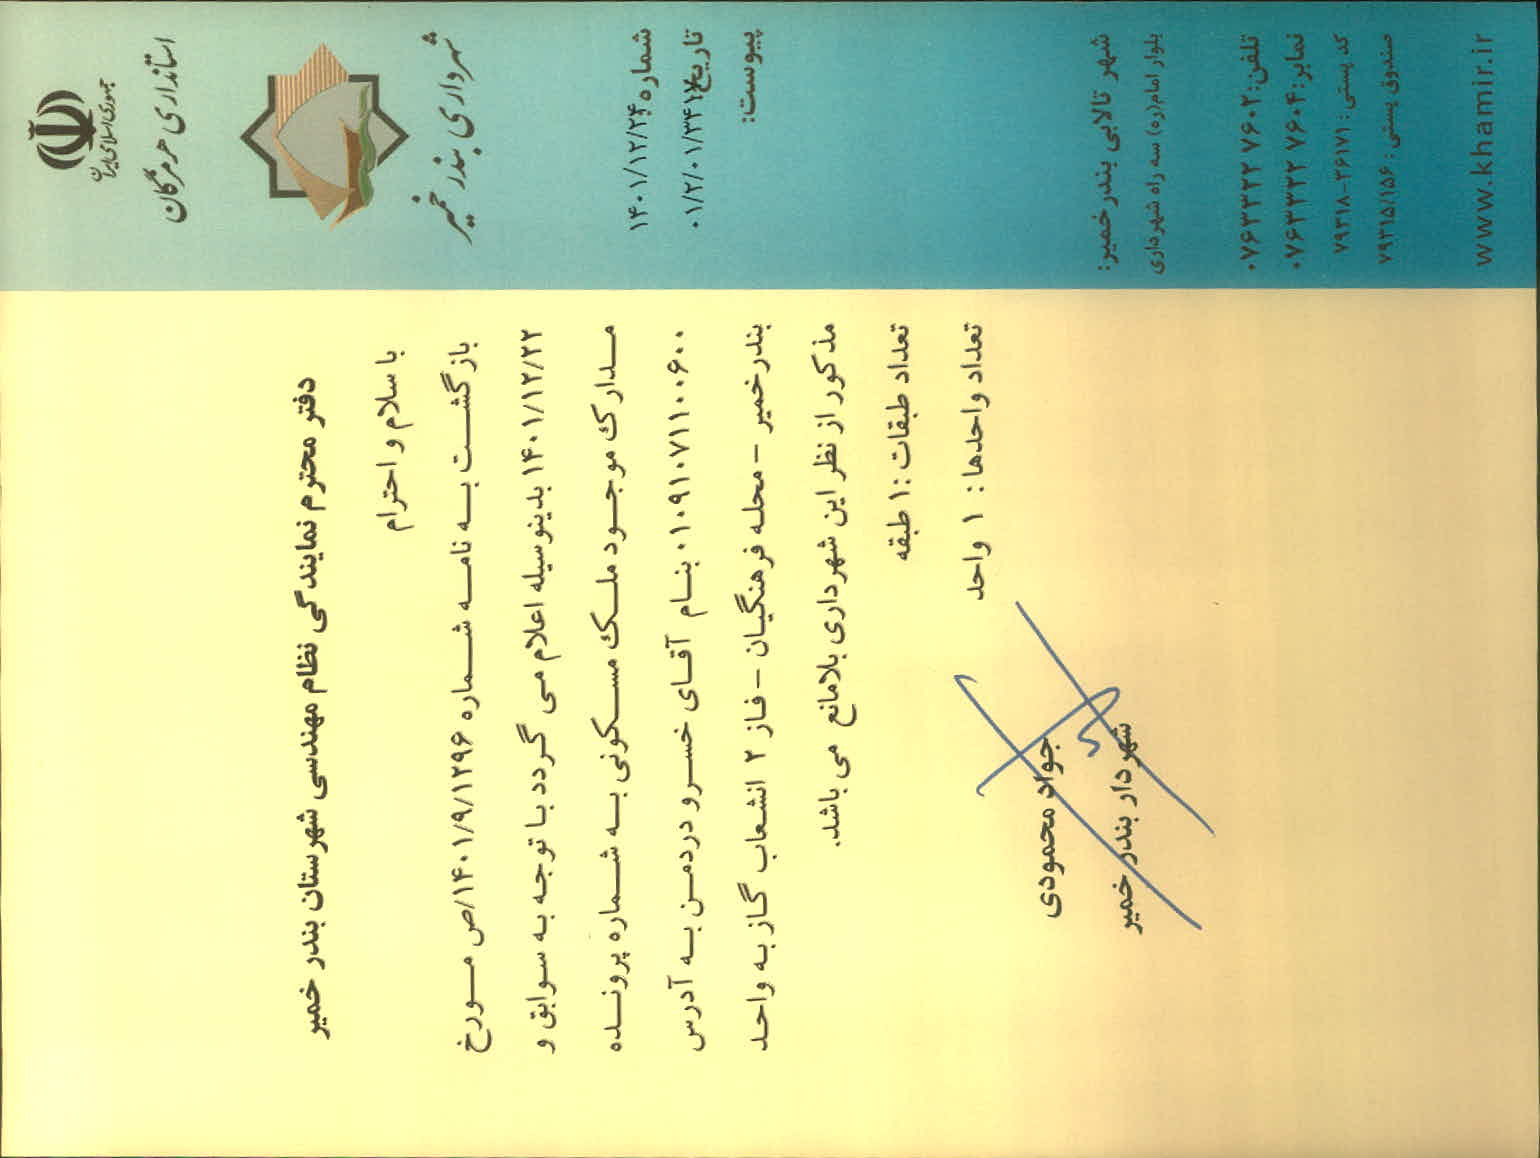 جمهوری اسلامی ایران
استانداری هرمزگان
شهرداری بندر خمیر
شماره
۱۴۰۱/۱۲/۲۴
تاریخ
پیوست:
دفتر محترم نمایندگی نظام مهندسی شهرستان بندر خمیر
با سلام و احترام
بازگشت به نامه شماره ۱۴۰۱/۹/۱۲۹۶/ص مورخ
۱۴۰۱/۱۲/۲۲ بدینوسیله اعلام می گردد با توجه به سوابق و
مدارک موجود ملک مسکونی به شماره پرونده
۰۱۰۹۱۰۷۱۱۰۰۶۰۰ بنام آقای خسرو دردمن به آدرس
بندرخمیر - محله فرهنگیان - فاز ۲ انشعاب گاز به واحد
مذکور از نظر این شهرداری بلامانع می باشد.
تعداد طبقات : ۱ طبقه
تعداد واحدها : ۱ واحد
جواد محمودی
شهردار بندر خمیر
شهر تالابی بندر خمیر:
بلوار امام(ره) سه راه شهرداری
تلفن: ۰۷۶۳۳۲۲ ۷۶۰۲
نمابر: ۰۷۶۳۳۲۲ ۷۶۰۴
کد پستی: ۷۹۳۱۸-۳۶۱۷۱
صندوق پستی: ۷۹۳۱۵/۱۵۶
www.khamir.ir